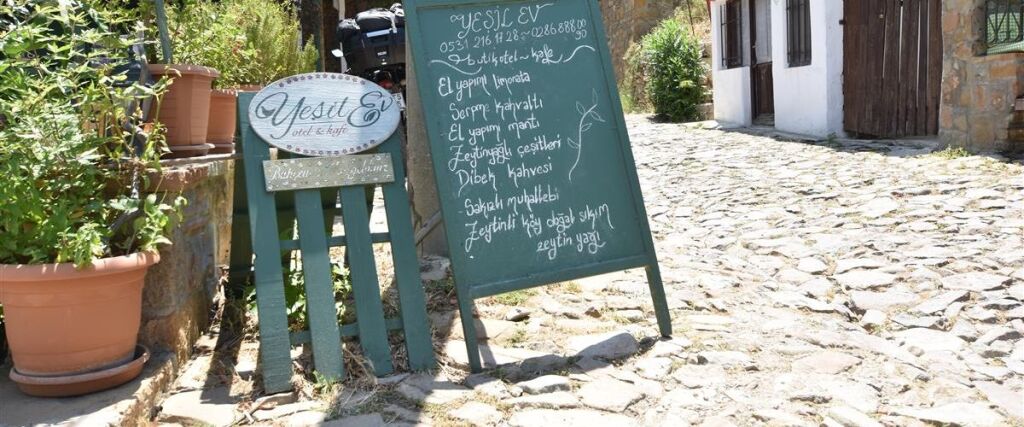 Yeşil Ev
otel & kafe
YEŞİL EV
0531 216 11 28 ~ 0286 888 00
90
butik otel ~ kafe
El yapımı limonata
Serpme kahvaltı
El yapımı mantı
Zeytinyağlı çeşitleri
Dibek kahvesi
Sakızlı muhallebi
Zeytinli köy doğal sıkım
zeytin yağı